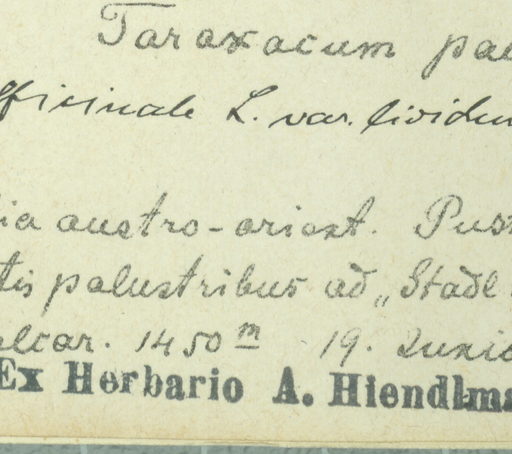 Taraxacum pal
fficinale L. var. lividum
ia austro-orient. Pust
tis palustribus ad „Stadl
alcar. 1450 m 19. Junio
Ex Herbario A. Hiendlma